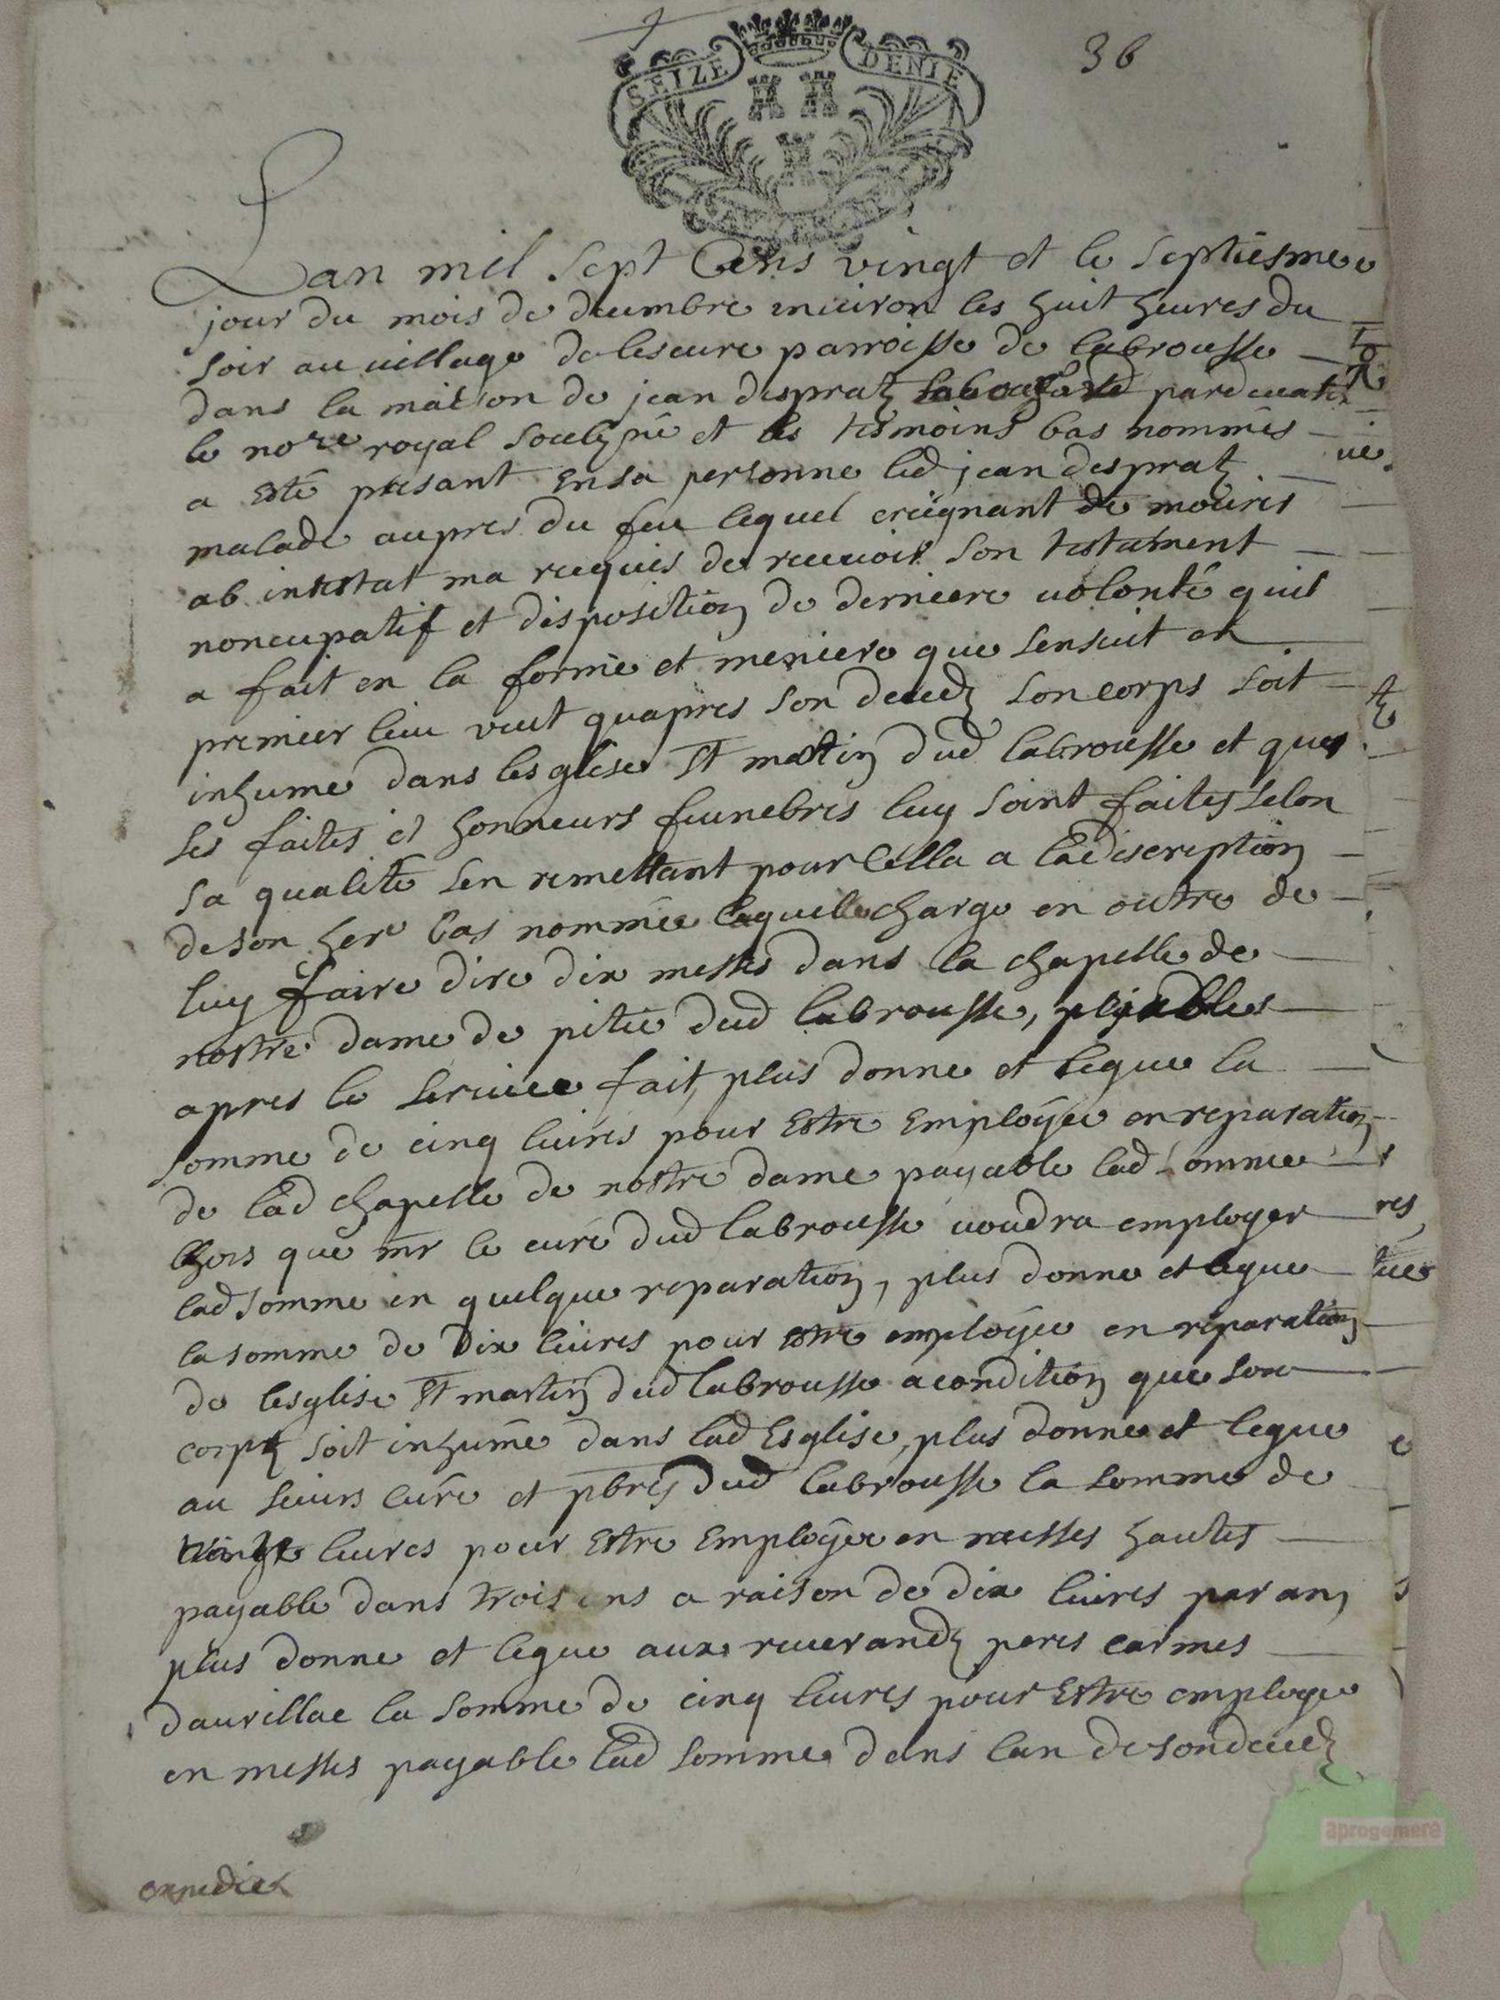 SEIZE DENIE
36
Lan mil sept Cens vingt et le septiesme
jour du mois de decembre enuiron les huit heures du
soir au uillage de leseure parroisse de labrousse
dans la maison de jean despratz pardeuant
le nore royal soubzne et les tesmoins bas nommés
a esté presant ensa personne led jean despratz
malade aupres du feu lequel creignant de mourir
ab intestat ma requis de receuoir son testament
noncupatif et disposition de derniere uolonté quil
a fait en la forme et meniere que sensuit en
premier lieu veut quapres son decedz son corps soit
inhumé dans lesglise St martin dud labrousse et que
ses faites et honneurs feunebres luy soint faites selon
sa qualité sen remettant pour cella a la discreption
deson here bas nommée laquelle charge en outre de
luy faire dire dix messes dans la chapelle de
nostre dame de pitié dud labrousse, payables
apres le seruice fait, plus donne et legue la
somme de cinq liures pour Estre Employée en reparation
de lad chapelle de nostre dame payable lad somme
lhors que mr le curé dud labrousse voudra employer
lad somme en quelque reparation, plus donne et legue
la somme de dix liures pour estre employée en reparation
de lesglise St martin dud labrousse acondition que son
corps soit inhumé dans lad Esglise, plus donne et legue
au sieurs curé et pbres dud labrousse la somme de
liures pour Estre Employée en messes hautes
payable dans trois ans a raison de dix liures par an
plus donne et legue aux reuerandz peres carmes
daurillac la somme de cinq liures pour Estre employe
en messes payable lad somme dans lan de son decedz
expedié
aprogemere